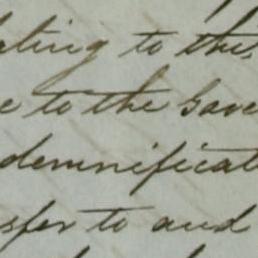 ating to this
e to the Gove
demnificat
sfer to and